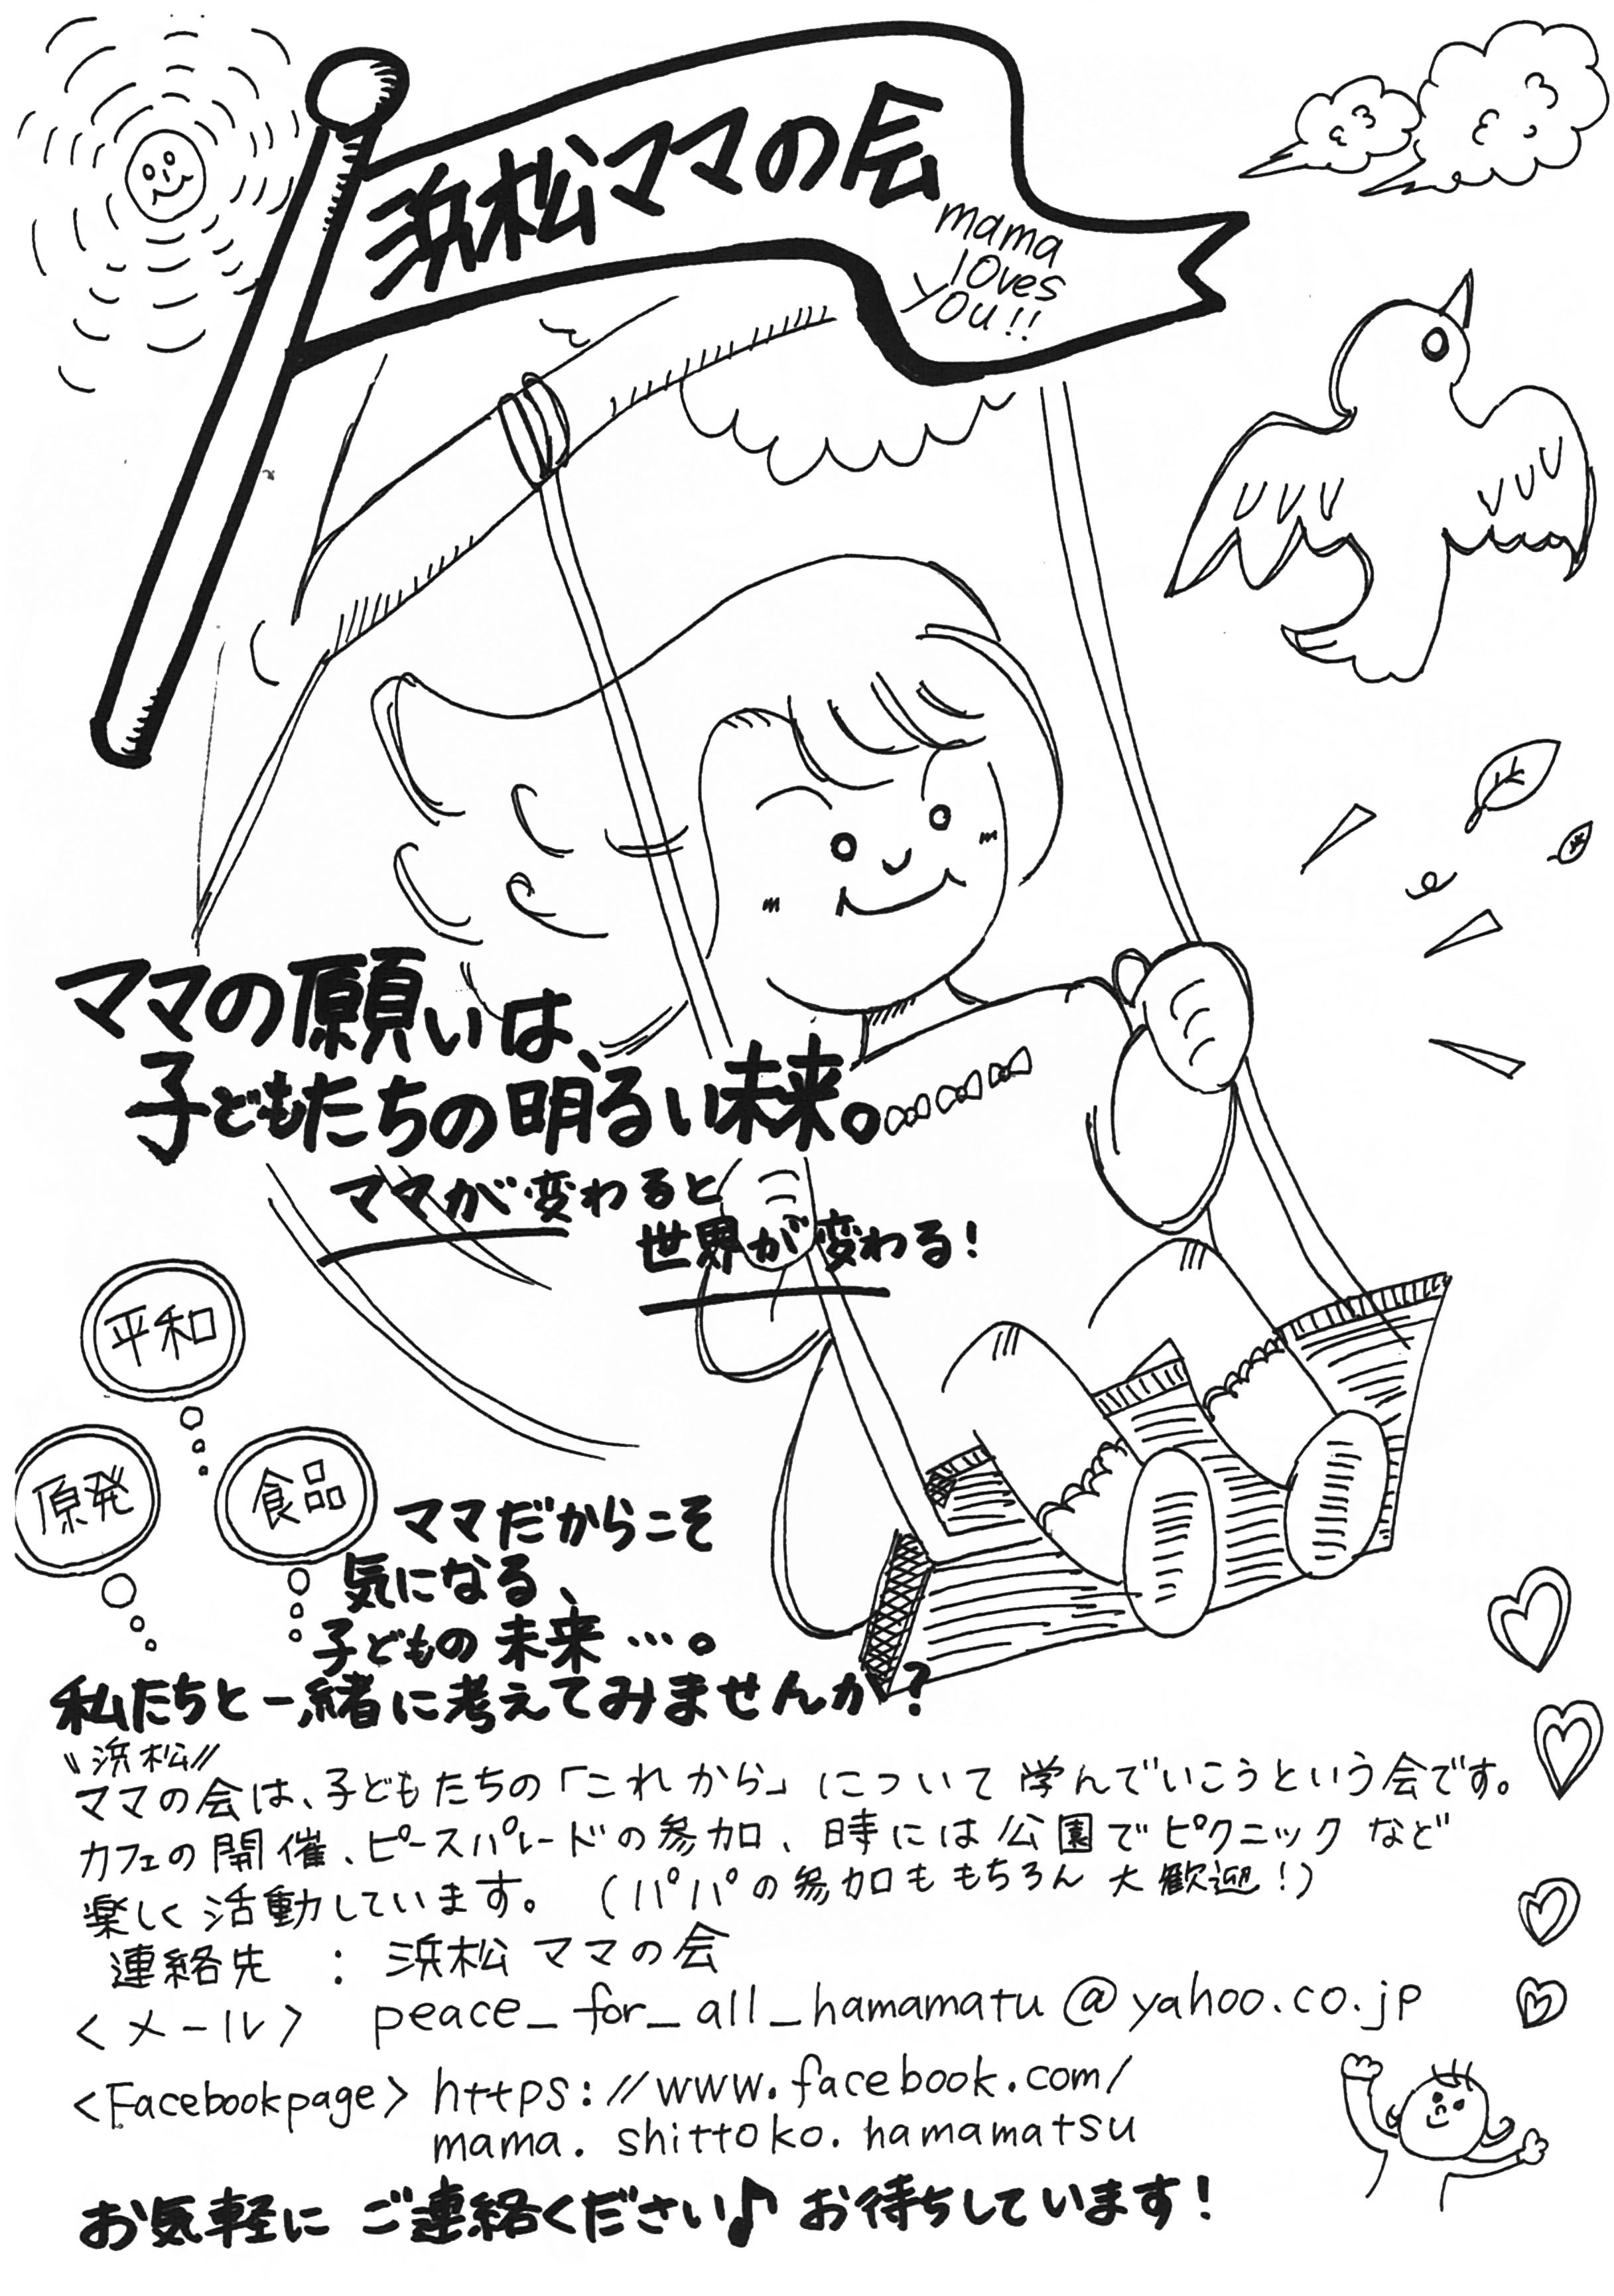 浜松ママの会
mama
loves
you!!
ママの願いは、
子どもたちの明るい未来。
ママが変わると
世界が変わる!
平和
原発
食品
ママだからこそ
気になる、
子どもの未来…。
私たちと一緒に考えてみませんか?
〝浜松〟
ママの会は、子どもたちの「これから」について学んでいこうという会です。
カフェの開催、ピースパレードの参加、時には公園でピクニックなど
楽しく活動しています。(パパの参加ももちろん大歓迎!)
連絡先 : 浜松ママの会
<メール> peace_for_all_hamamatu@yahoo.co.jp
<Facebookpage> https://www.facebook.com/
mama.shittoko.hamamatsu
お気軽にご連絡ください♪お待ちしています!